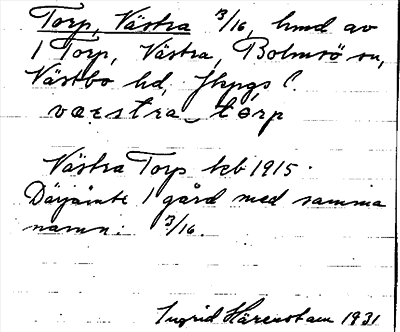 Torp, Västra 3/16, hmd av
1 Torp, Västra, Bolmsö sn,
Västbo hd, Jkpgs l.
væstra torp
Västra Torp kb 1915.
Därjämte 1 gård med samma
namn. 3/16.
Ingrid Härenstam 1931